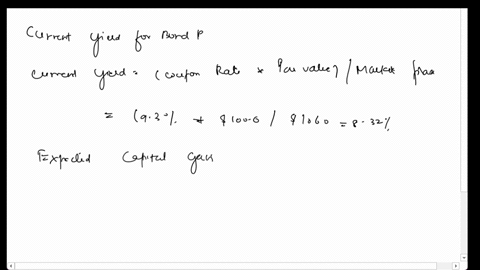 Current yield for Bond P
Current yield = (Coupon Rate * Par value) / Market price
= (9.30% * $1000 / $1060 = 8.32%
Expected Capital Gain